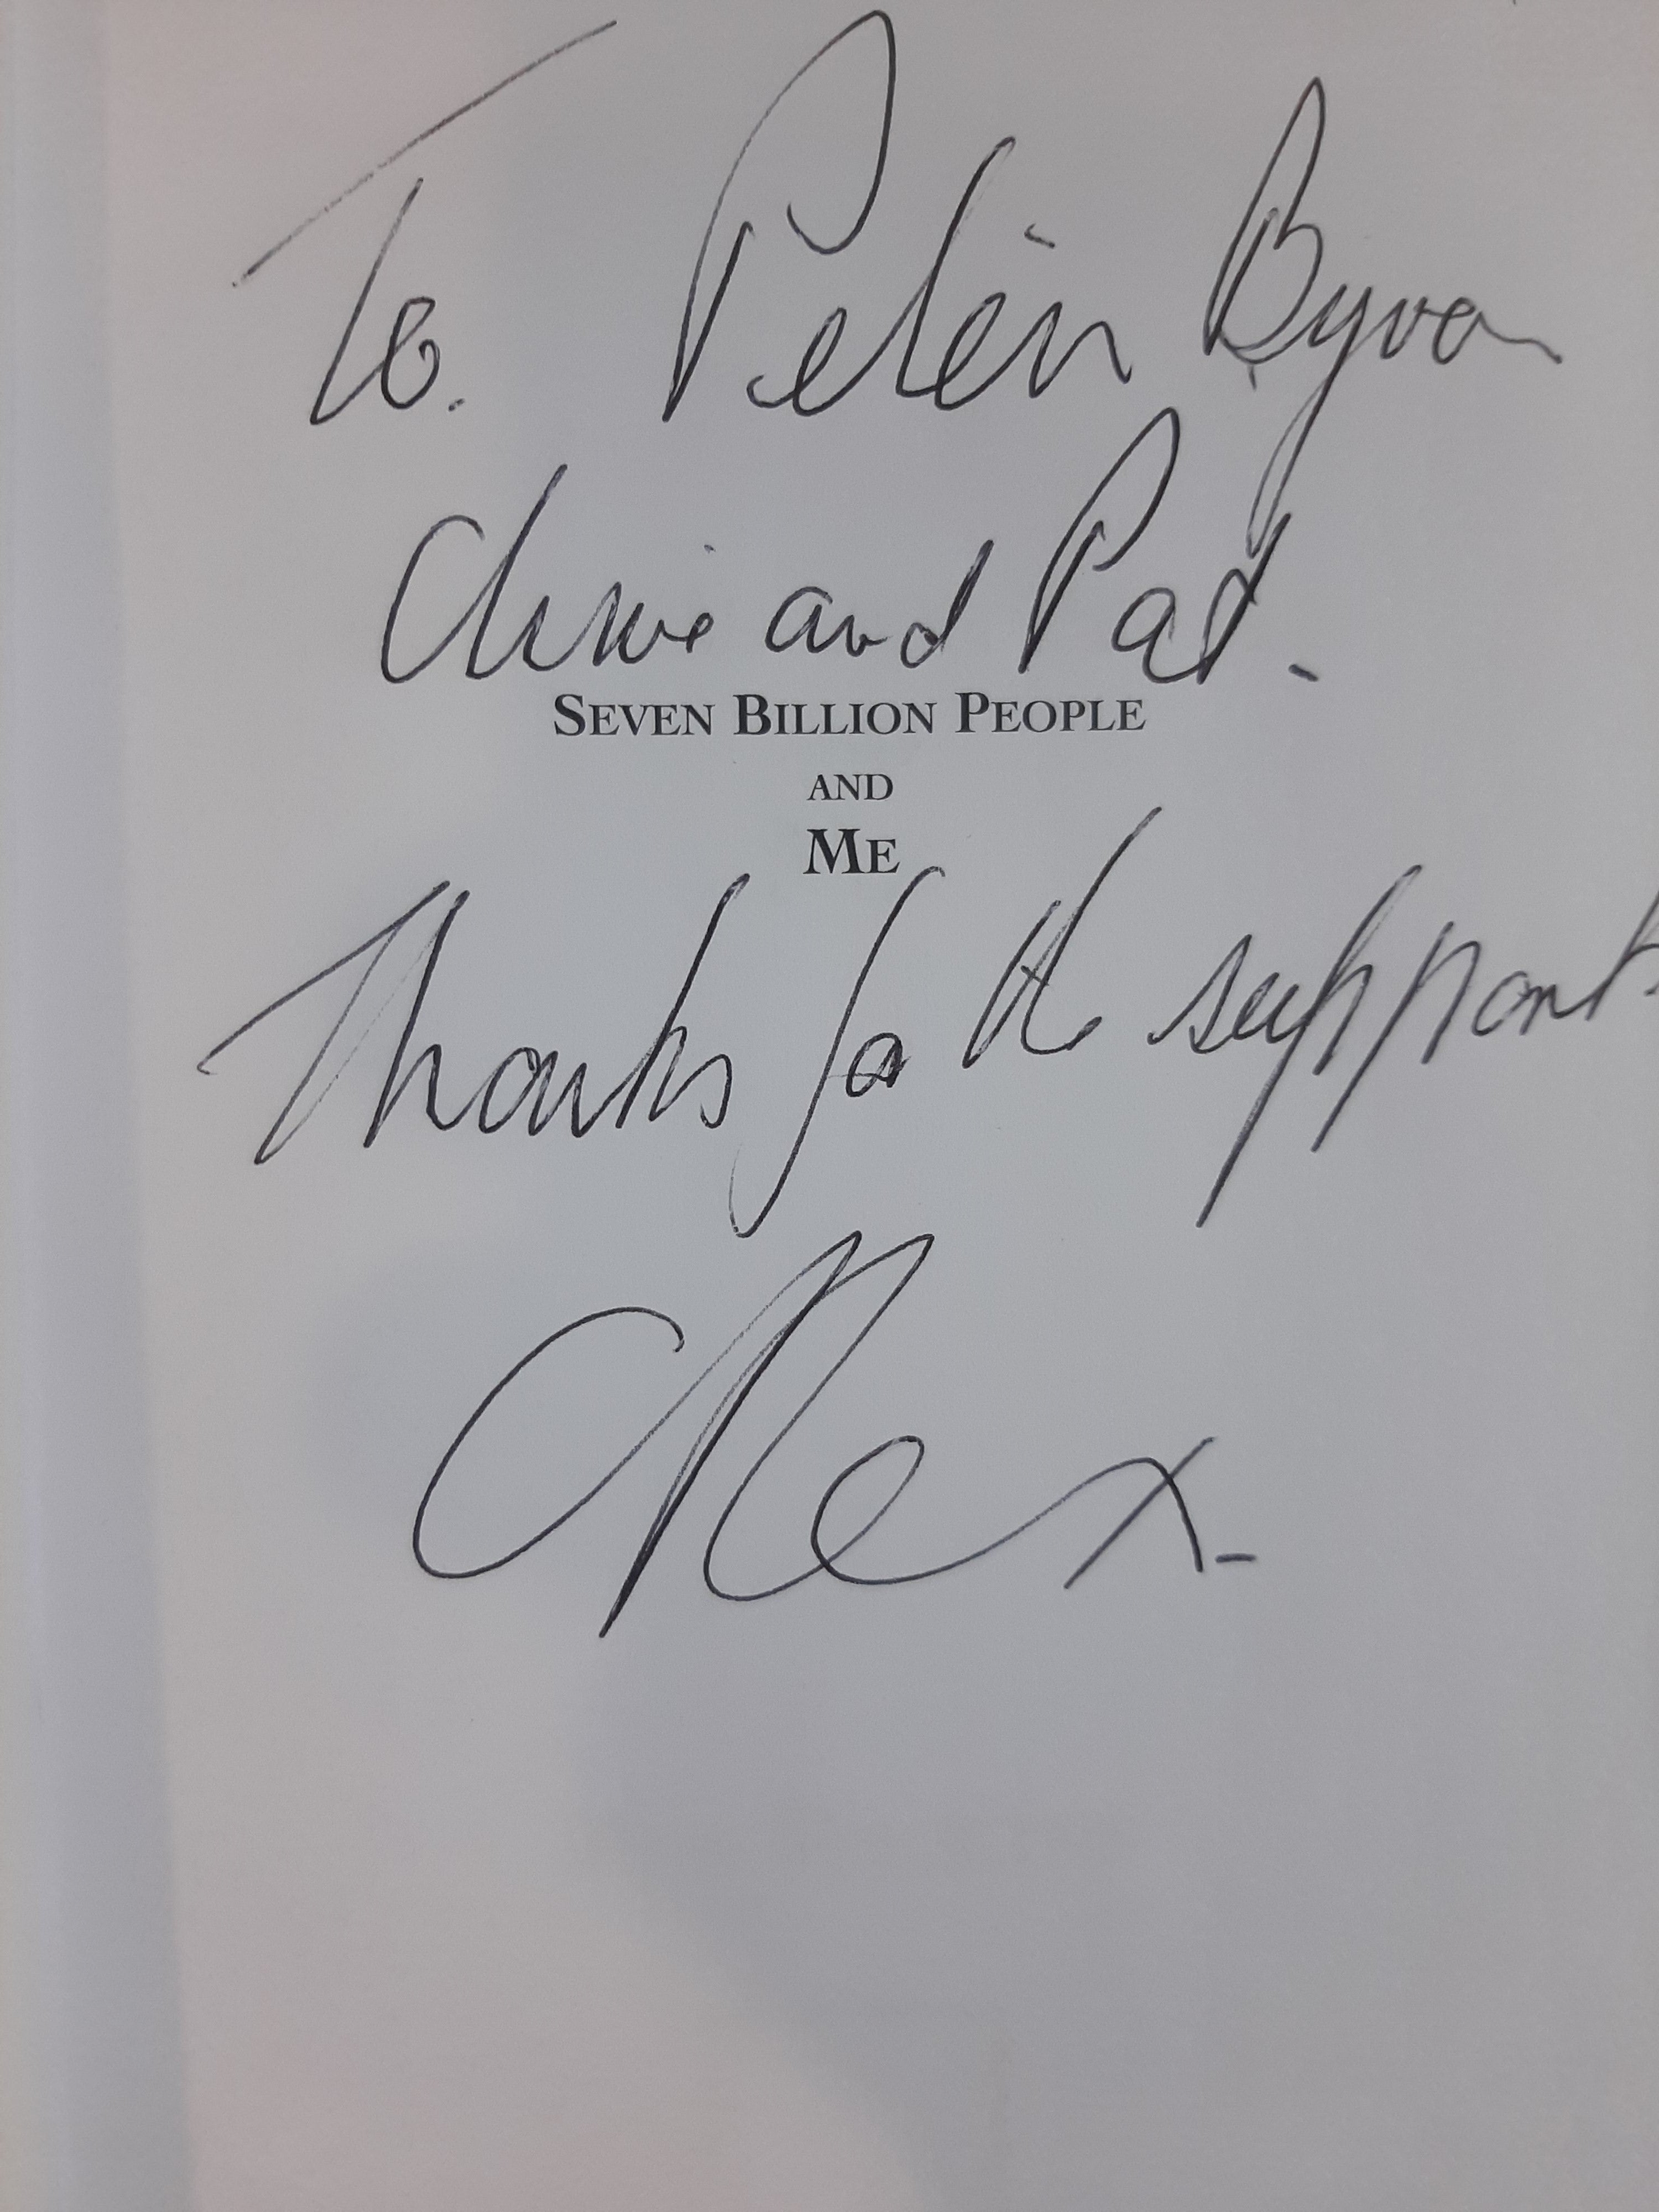 To. Peten Byron
Chris and Pat.
SEVEN BILLION PEOPLE
AND
ME
Thanks for the support
Alex